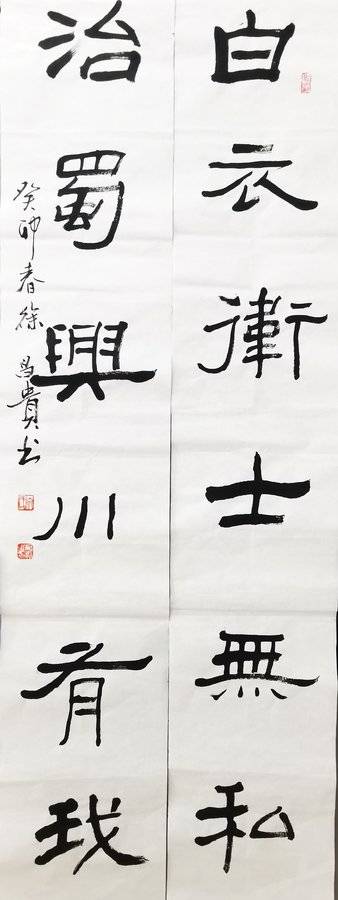 白衣衛士無私
治蜀興川有我
癸卯春徐昌貴书